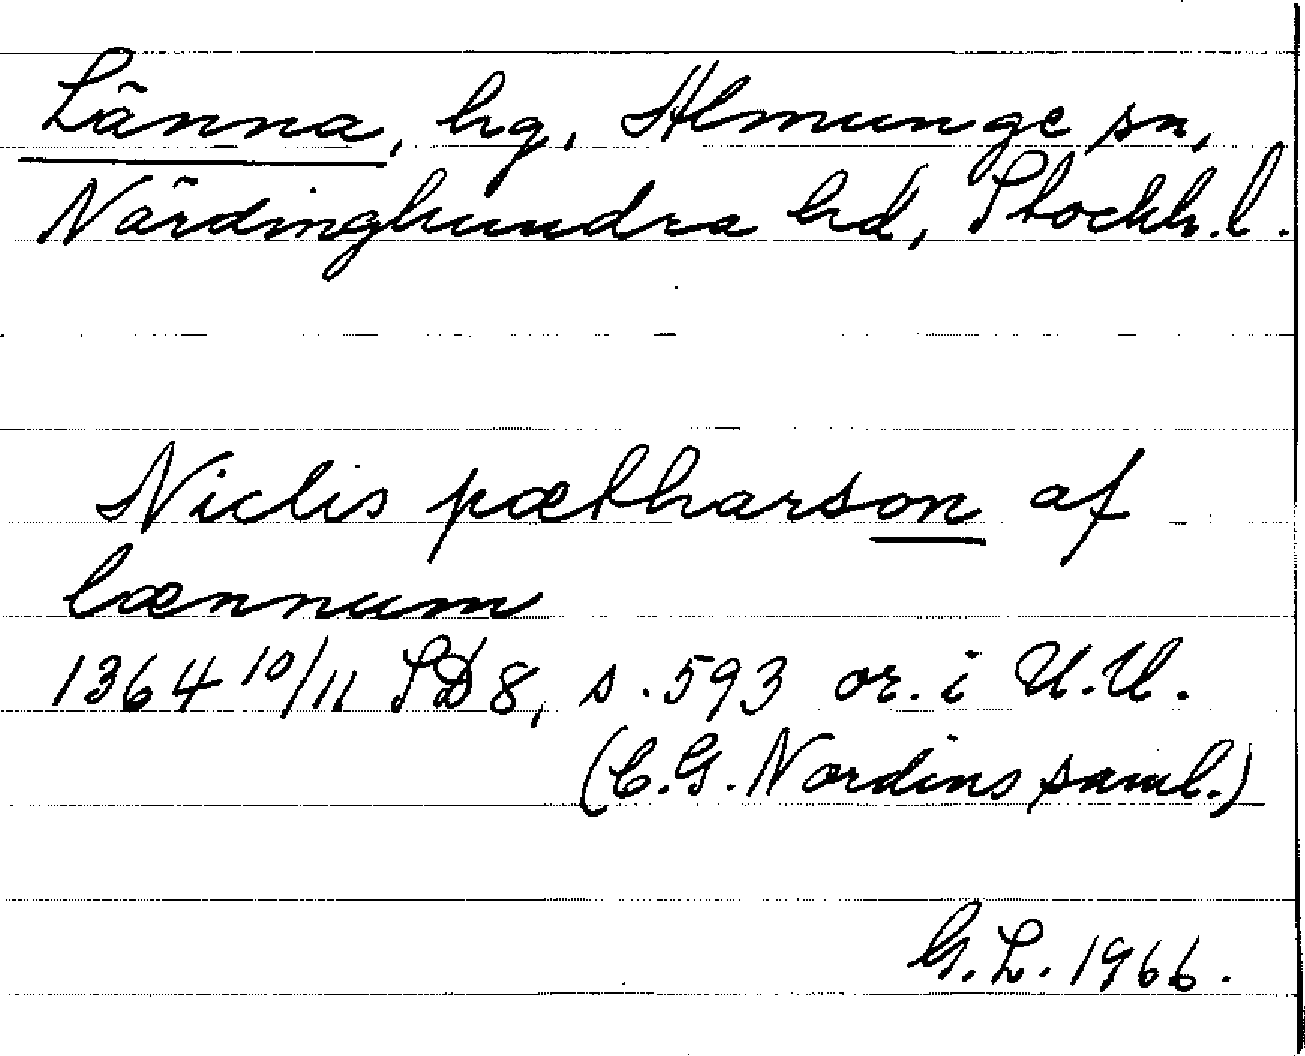 Länna, hg, Almunge sn,
Närdinghundra hd, Stockh. l.
Niclis pætharson af
lænnum
1364 10/11 SD 8, s. 593 or. i U.U.
(C.G. Nordins saml.)
G.L. 1966.